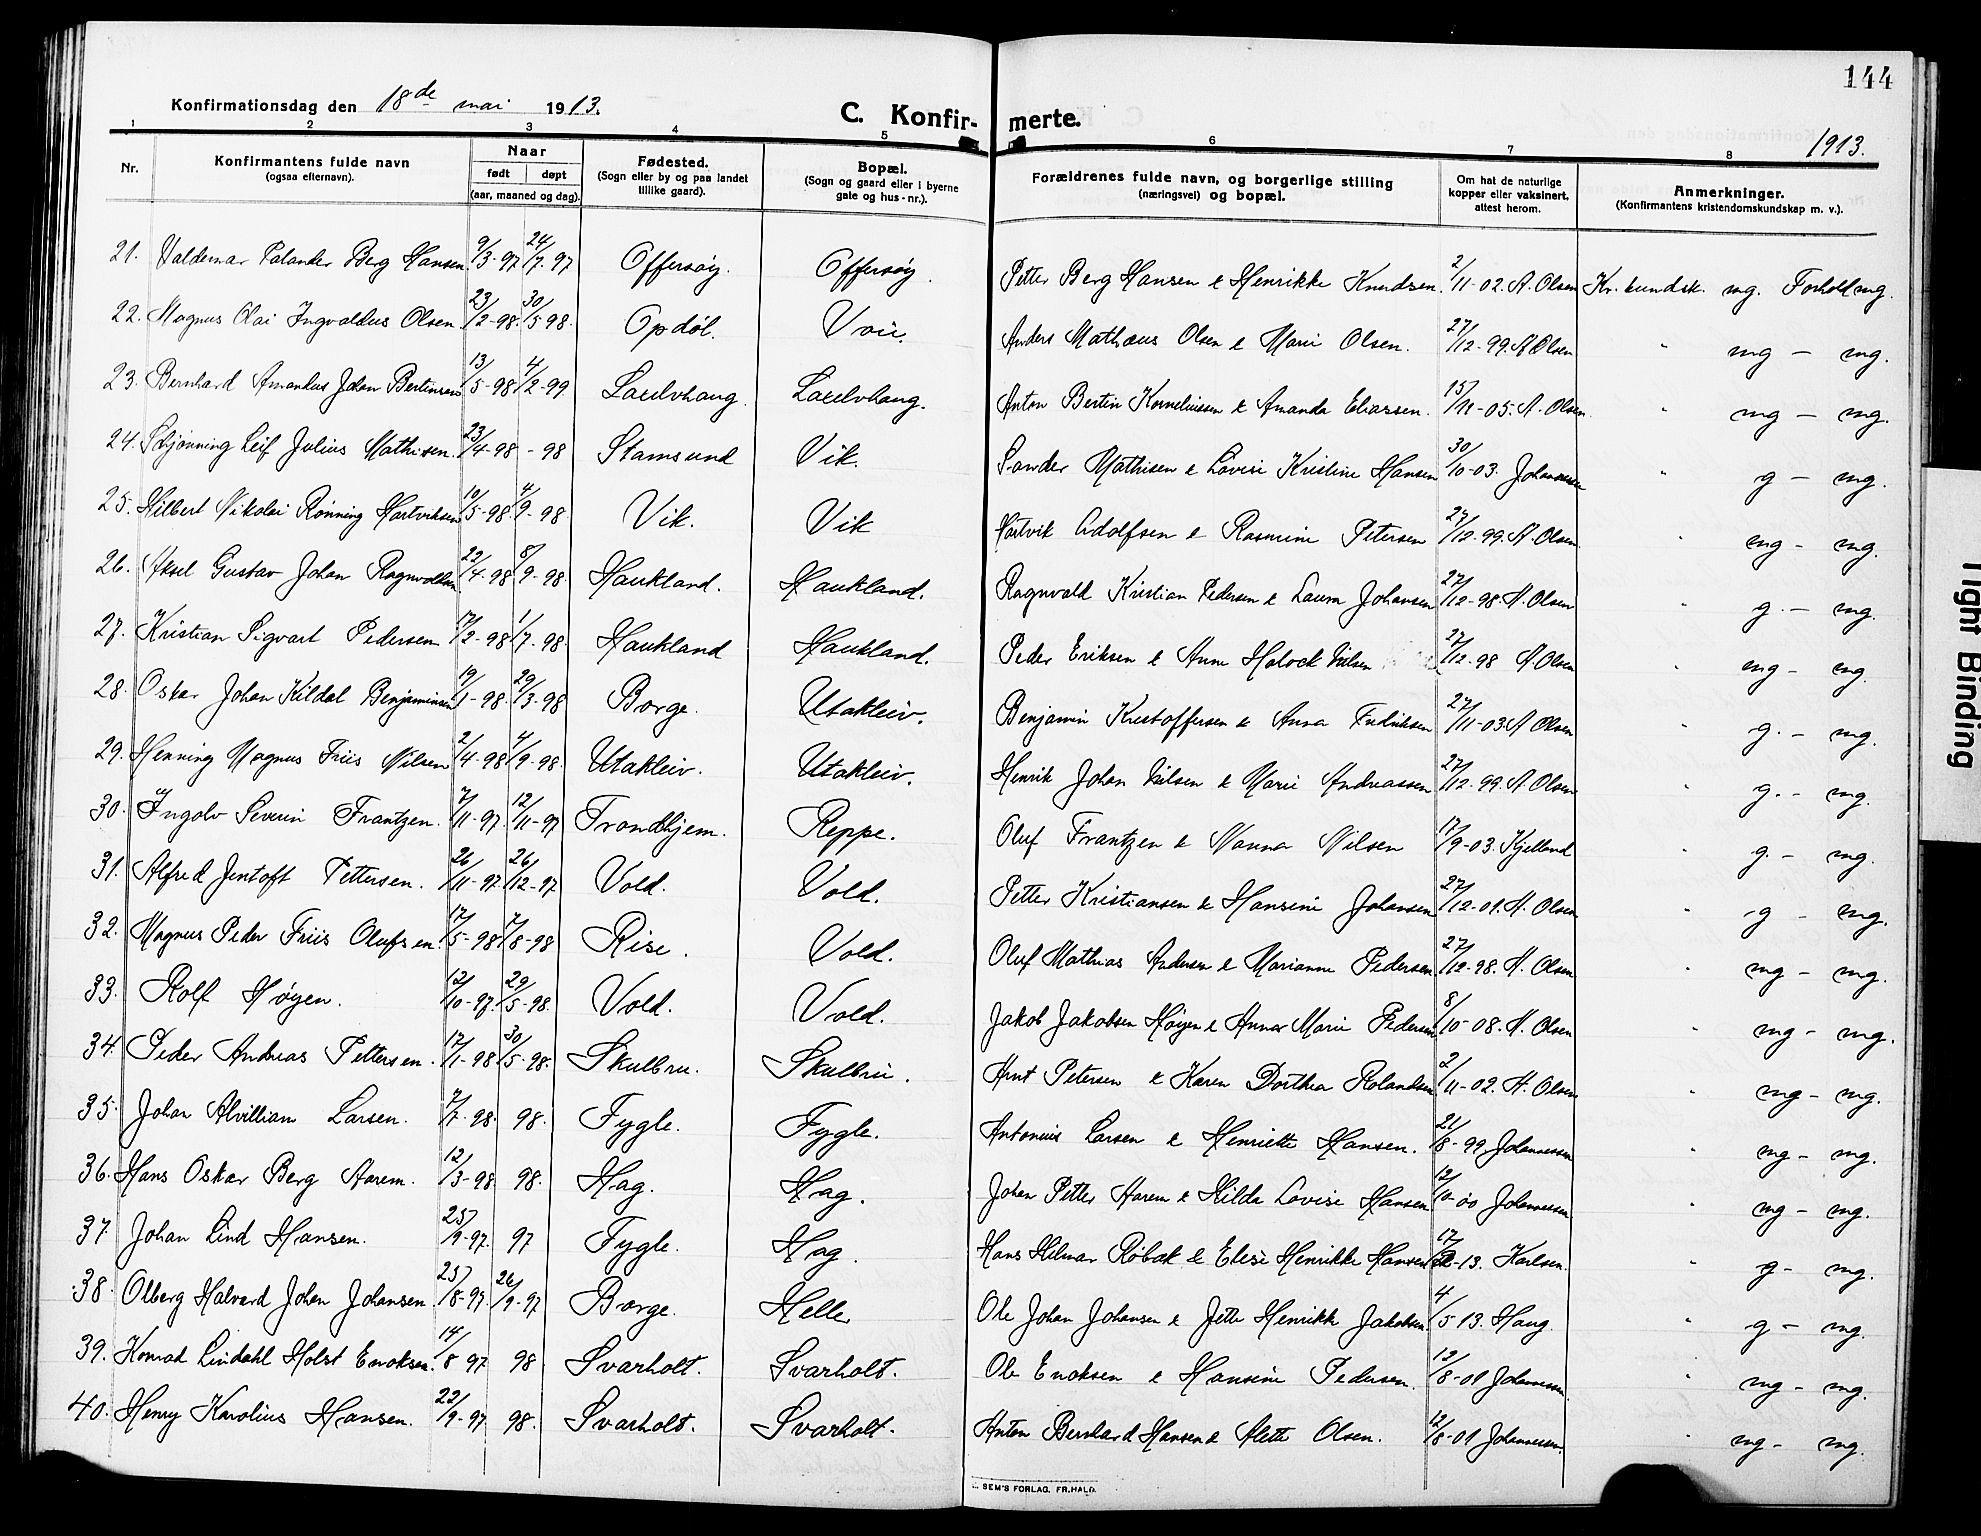 144
Konfirmationsdag den 18de mai 1913.
C. Konfir- merte.
1913.
1 2 3 4 5 6 7 8
Nr.
Konfirmantens fulde navn
(ogsaa efternavn).
Naar
født døpt
(aar, maaned og dag).
Fødested.
(Sogn eller by og paa landet
tillike gaard).
Bopæl.
(Sogn og gaard eller i byerne
gate og hus-nr.).
Forældrenes fulde navn, og borgerlige stilling
(næringsvei) og bopæl.
Om hat de naturlige
kopper eller vaksinert,
attest herom.
Anmerkninger.
(Konfirmantens kristendomskundskap m. v.).
21. Valdemar Palander Berg Hansen 9/3-97 24/7-97 Offersøy. Offersøy. Petter Berg Hansen & Henrikke Knudsen. 2/11-02. A. Olsen Kr. kundsk. mg. Forhold mg.
22. Magnus Olai Ingvaldus Olsen 23/2-98. 30/5 98. Opdøl. Voie. Anders Mathæus Olsen & Marie Olsen. 27/12-99. A Olsen " mg — mg.
23. Bernhard Amandus Johan Bertinsen 13/5-98 4/2-99 Anton Bertin Korneliussen & Amanda Eliassen. 15/11-05. A. Olsen " mg — mg.
24. Schjønning Leif Julius Mathisen. 23/4-98 - 98 Stamsund Vik. Sander Mathisen & Lovise Kristine Hansen 30/10-03. Johannessen " g — mg.
25. Hilbert Nikolai Rønning Hartviksen 10/5-98 4/9-98 Vik. Vik Hartvik Adolfsen & Rasmine Petersen 27/12-99. A. Olsen. " mg - mg.
26. Aksel Gustav Johan Ragnvaldsen 22/4-98 8/9-98. Haukland. Haukland. Ragnvald Kristian Pedersen & Laura Johansen 27/12-98. A. Olsen " g. — mg.
27. Kristian Sigvart Pedersen 17/2-98 1/7-98. Haukland Haukland. Peder Eriksen & Anne Nilsen 27/12-98 A Olsen " mg - mg.
28. Oskar Johan Kildal Benjaminsen 19/1-98. 29/3-98 Borge. Utakleiv. Benjamin Kristoffersen & Anna Fredriksen 27/11-03. A Olsen " g. — mg.
29. Henning Magnus Friis Nilsen 2/4-98 4/9-98. Utakleiv. Utakleiv. Henrik Johan Nilsen & Marie Andreassen 27/12-99. A Olsen " g. - mg.
30. Ingolv Severin Frantzen. 7/11-97. 12/11-97 Trondhjem. Reppe. Oluf Frantzen & Nanna Nilsen 17/9-03. Kjelland " g. - mg.
31. Alfred Jentoft Pettersen. 26/11-97. 26/12-97 Vold. Vold. Petter Kristiansen & Hansine Johansen 27/12-01. A. Olsen " g - mg.
32. Magnus Peder Friis Olufsen. 17/5-98 7/8-98 Rise. Vold. Oluf Mathias Andersen & Marianne Pedersen 27/12-98. A. Olsen " mg - mg.
33. Rolf Høyen. 12/10-97. 29/5-98. Vold. Vold. Jakob Jakobsen Høyen & Anna Marie Pedersen 8/10-08. A. Olsen " mg - mg.
34. Peder Andreas Pettersen. 17/1-98 30/5-98. Skulbru. Skulbru. Arnt Petersen & Karen Dorthea Rolandsen 2/11-02. A. Olsen " mg - mg.
35. Johan Alvilliam Larsen. 7/7-98. 98. Fygle. Fygle. Antonius Larsen & Henriette Hansen. 21/8-99 Johannessen " mg - mg.
36. Hans Oskar Berg Aarem. 12/3-98 98. Hag. Hag. Johan Petter Aarem & Hilda Lovise Hansen 12/10-00 Johannessen " mg - mg.
37. Johan Lind Hansen. 25/9-97. 97 Fygle. Hag. Hans Hilmar Røbæk & Elese Henrikke Hansen 17/-13. Karlsen. " g - mg.
38. Olberg Halvard Johan Johansen 25/8-97 26/9-97 Borge. Helle Ole Johan Johansen & Jette Henrikke Jakobsen 4/5 13. Haug. " g - mg.
39. Konrad Lindahl Holst Enoksen. 14/8 97 98 Svarholt. Svarholt. Ole Enoksen & Hansine Pedersen. 12/8-01 Johannessen. " mg - mg.
40. Henry Karolius Hansen. 22/9-97 98. Svarholt. Svarholt. Anton Bernhard Hansen & Alette Olsen. 12/8-01 Johannessen. " mg - mg.
SEM'S FORLAG, FR.HALD.
Tight Binding